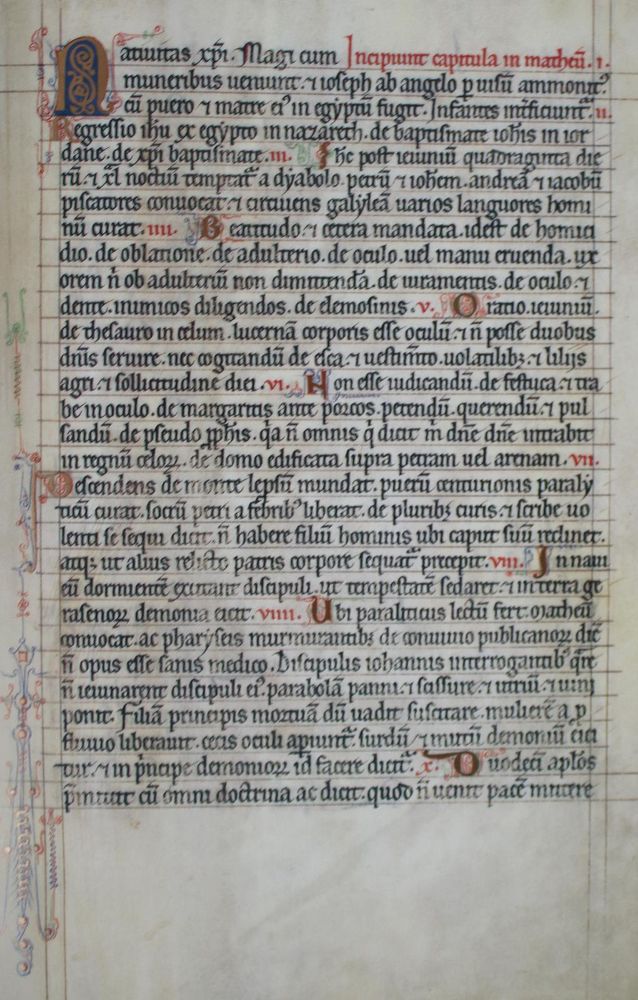 Natiuitas xp̄i. Magi cum Incipiunt capitula in matheū. .i.
muneribus ueniunt. ⁊ ioseph ab angelo p uisū ammonit᷒
cū puero ⁊ matre ei᷒ in egyptū fugit. Infantes int̄ficiunt᷑. .ii.
Regressio ihu ex egypto in nazareth. de baptismate ioh̄is in ior
dane. de xp̄i baptismate. .iii. Ihc post ieiuniū quadraginta die
rū. ⁊ xl noctiū temptat᷑ a dyabolo. petrū ⁊ ioh̄em. andreā ⁊ iacobū
piscatores conuocat ⁊ circuiens galyleā uarios languores homi
nū curat. .iiii. Beatitudo. ⁊ cetera mandata. idest de homici
dio. de oblatione. de adulterio. de oculo. uel manu eruenda. ux
orem n̄ ob adulteriū non dimittenda. de iuramentis. de oculo. ⁊
dente. inimicos diligendos. de elemosinis. .v. Oratio. ieiuniū.
de thesauro in celum. lucernā corporis esse oculū. ⁊ n̄ posse duobus
dn̄is seruire. nec cogitandū de esca. ⁊ uestim̄to. uolatilibꝫ. ⁊ lilijs
agri. ⁊ sollicitudine diei. .vi. Non esse iudicandū. de festuca. ⁊ tra
be in oculo. de margaritis ante porcos. petendū. querendū. ⁊ pul
sandū. de pseudo ꝓph̄is. q̄a n̄ omnis q̇ dicit m̄ dn̄e dn̄e intrabit
in regnū celoꝝ. de domo edificata supra petram uel arenam. .vii.
Descendens de monte lepsū mundat. puerū centurionis paraly
ticū curat. socrū petri a febrib᷒ liberat. de pluribꝫ curis. ⁊ scribe uo
lenti se sequi dicit. n̄ habere filiū hominis ubi caput suū reclinet.
atqꝫ ut alius relicto patris corpore sequat᷑ precepit. .viii. In naui
eū dormientē excitant discipuli. ut tempestatē sedaret. ⁊ in terra ge
rasenoꝝ demonia eicit. .viiii. Ubi paraliticus lectū fert. matheū
conuocat. ac pharyseis murmurantibꝫ de conuiuio publicanoꝝ dic̄
n̄ opus esse sanis medico. Discipulis iohannis interrogantib᷒ q̄re
n̄ ieiunarent discipuli ei᷒. parabolā panni. ⁊ scissure. ⁊ utriū. ⁊ uini
ponit. Filiā principis mortuā dū uadit suscitare. mulierē a p
fluuio liberauit. cecis oculi apiunt᷑. surdū ⁊ mutū demoniū eici
tur. ⁊ in p̄ncipe demonioꝝ id facere dicit᷑. .x. Duodeci ap̄los
p̄mittit cū omni doctrina ac dicit. quod n̄ uenit pacē mittere